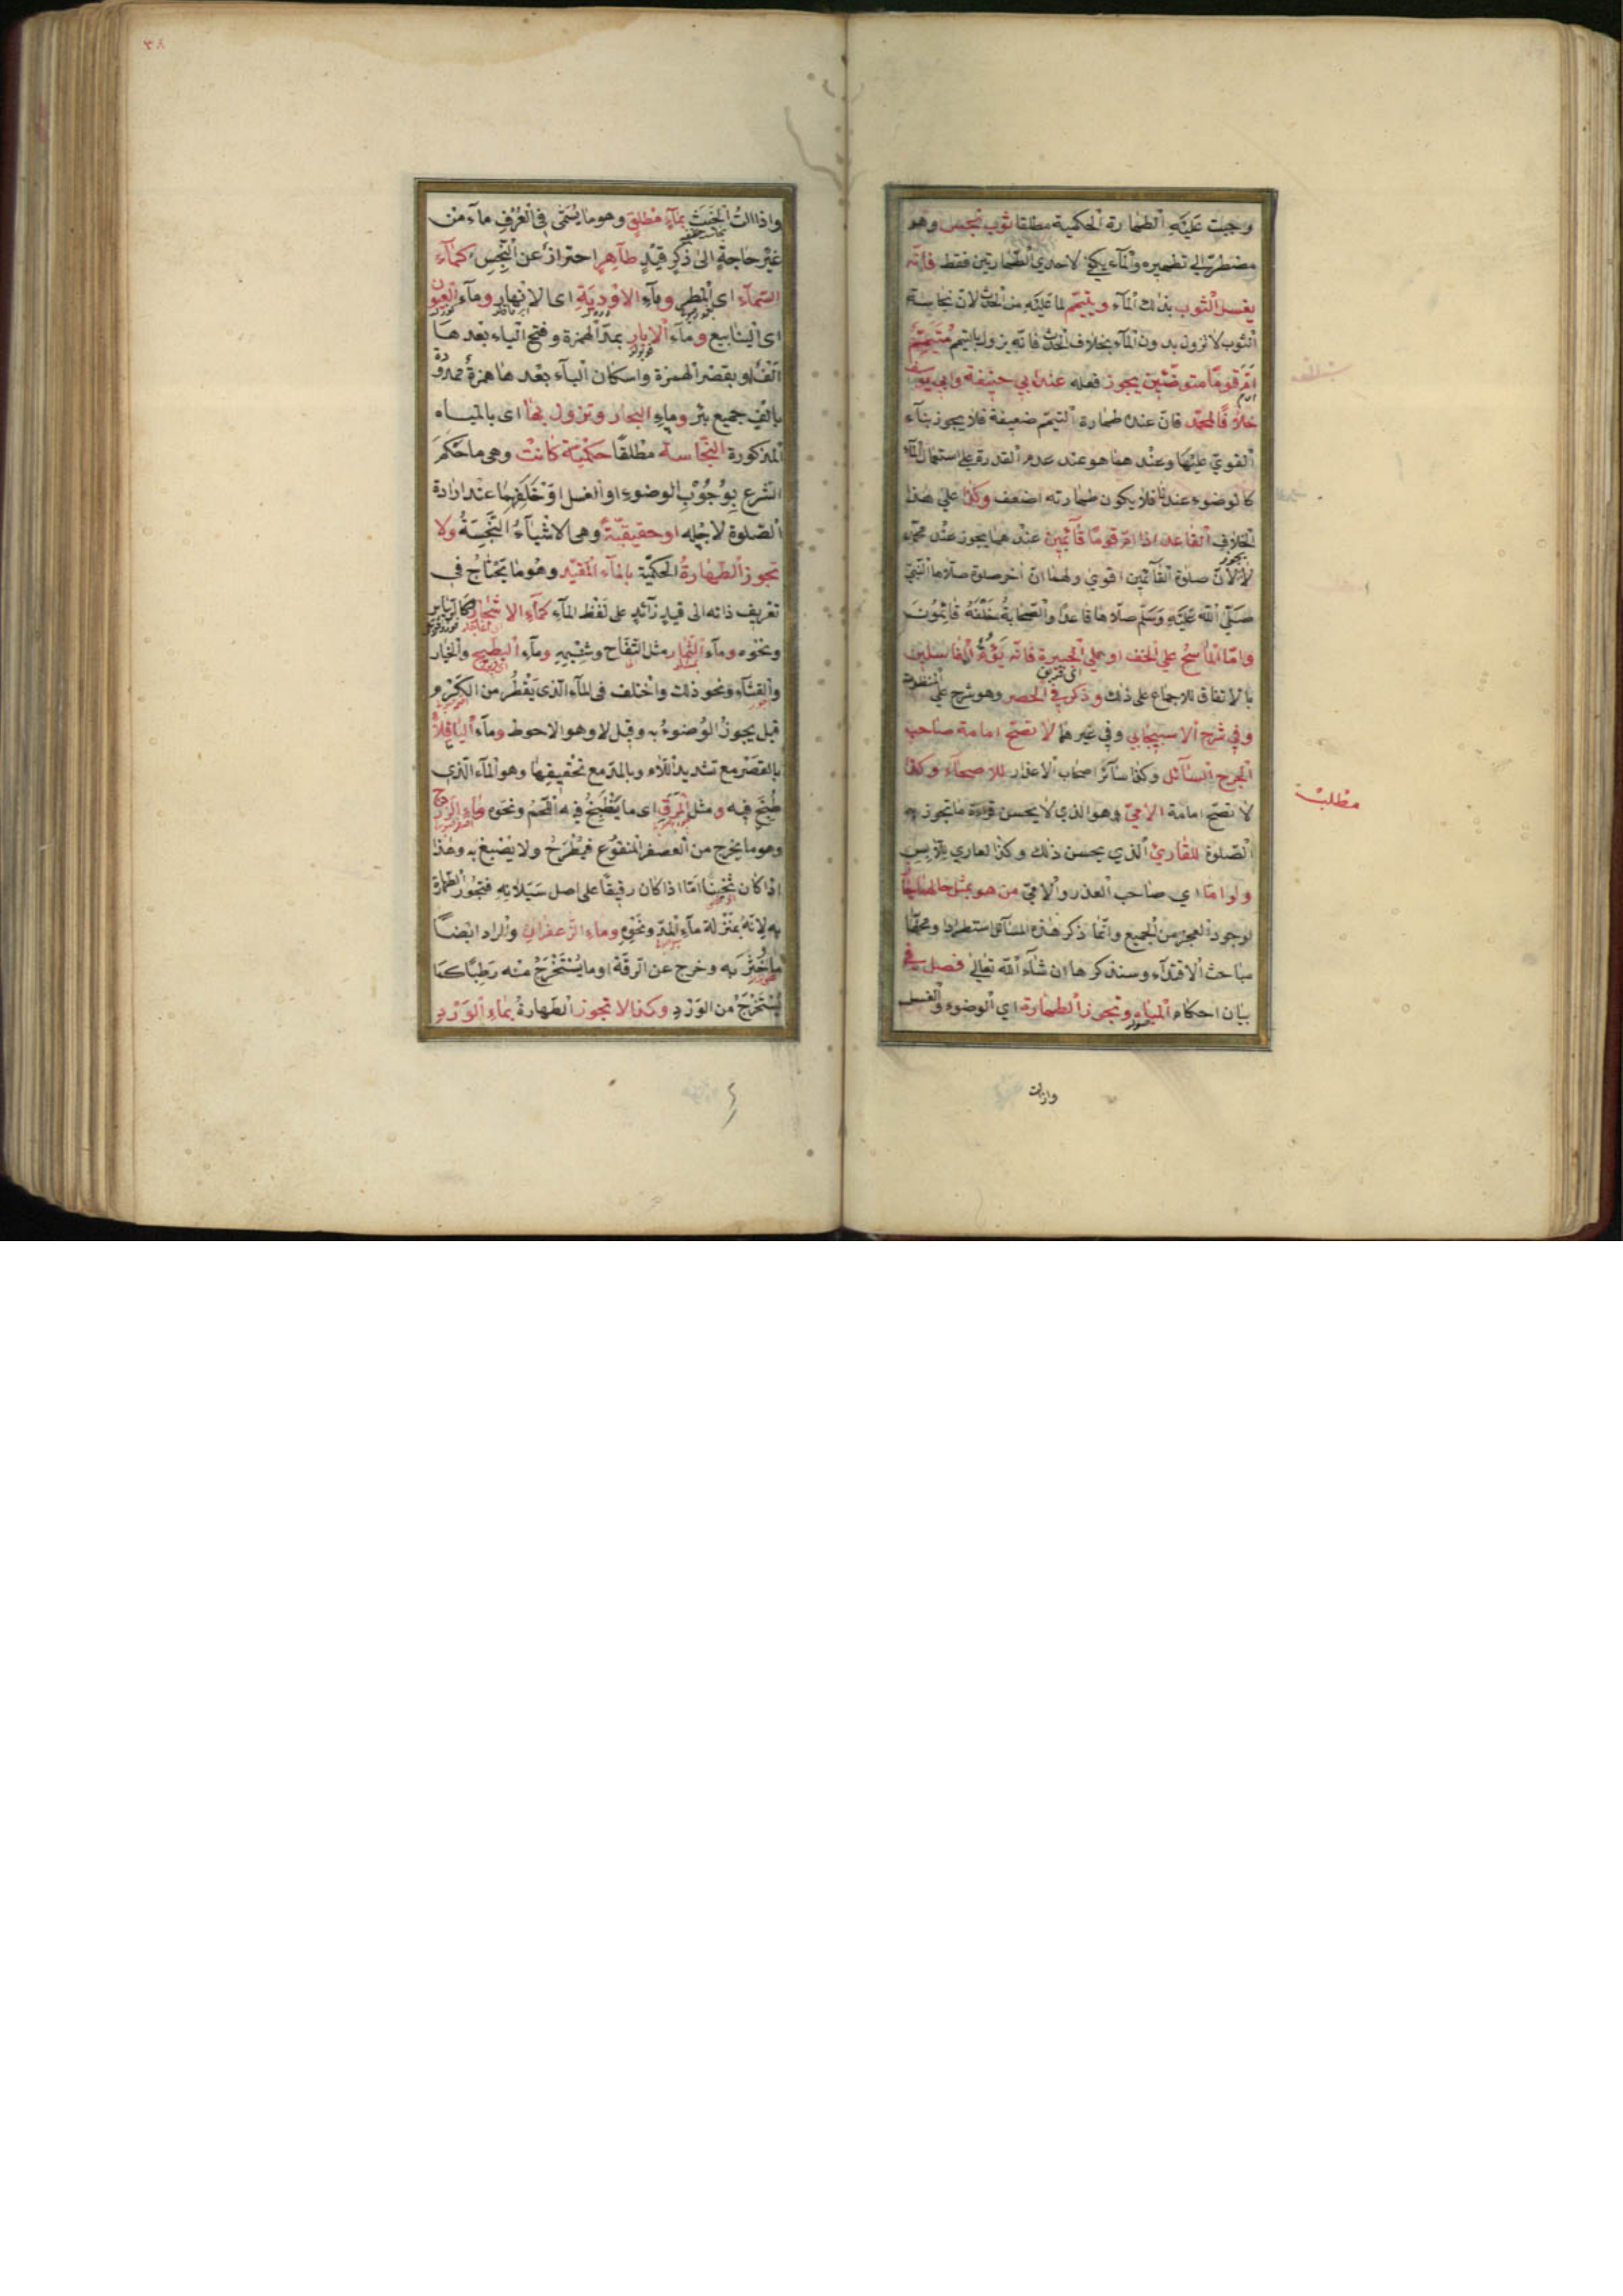 وجبت عليه الطهارة الحكمية مطلقا ثوب نجس وهو
مضطر الي تطهيره والمآء يكفي لاحدي الطهارتين فقط فانّه
يغسل الثوب بذلك المآء ويتيمّم لما عليه من الحدث لانّ نجاسة
الثوب لا تزول بدون المآء بخلاف الحدث فانّه يزول بالتيمم مُتَيَمِّمٌ
اَمَّ قومًا متوضّئين يجوز فعله عند ابي حنيفة وابي يوسف
خلافًا لمحمّد فانّ عنده طهارة التيمّم ضعيفة فلا يجوز بنآء
القويّ عليها وعندهما هو عند عدم القدرة علي استعمال المآء
كالوضوء عندنا فلا يكون طهارته اضعف وكذا علي هذا
الخلاف القاعد اذا امّ قومًا قآئمين عندهما يجوز عند محمّد
لا لانّ صلوة القآئمين اقوي ولهما انّ اخر صلوة صلّاها النّبيّ
صَلَّى اللّه عَلَيْهِ وَسَلَّم صلّاها قاعدًا والصّحابةُ خَلْفَهُ قائمُونَ
وامّا الماسحُ علي الخف او علي الجبيرة فانّه يَؤُمُّ الغاسلين
بالاتفاق للاجماع علي ذلك وذكر في الحصر وهو شرح علي المنظومة
وفي شرح الاسبيجابي وفي غيرهما لا تصحّ امامة صاحب
الجرح السآئل وكذا سآئر اصحاب الاعذار للاصحآء وكذا
لا تصحّ امامة الاميّ وهو الذي لا يحسن قراءة ما تجوز به
الصّلوة للقارئ الذي يحسن ذلك وكذا العاري للّابس
ولو امّا اي صاحب العذر والاميّ من هو بمثل حالهما
لوجود العجز من الجميع وانّما ذكر هذه المسآئل استطرادا ومحلّها
مباحث الاقتدآء وسنذكرها ان شآء اللّه تعالي فصل في
بيان احكام المياه وتجوز الطهارة اي الوضوء والغسل
وازالت
مطلب
٣٨
وازالتُ الخبث بمآءٍ مطلق وهو ما يُسَمّى في العُرْفِ مآء من
غيْر حاجةٍ الى ذكر قيدٍ طاهرٍ احترازٌ عن النّجس كمآء
السّمآء اى المطر ومآءِ الاوْدِيَةِ اى الانهار ومآءِ العيون
اى الينابيع ومآء الابار بمدّ الهمزة وفتح البآء بعدها
الفٌ او بقصر الهمزة واسكان البآء بعدها همزةٌ ممدودة
بالفٍ جميع بئر ومآءِ البحار وتزول بها اى بالمياه
المذكورة النّجاسة مطلقًا حكميّة كانتْ وهى ما حَكَمَ
الشّرع بِوُجُوْبِ الوضوء او الغسل اوْ خَلَفِهِما عند ارادة
الصّلوة لاجْلِه او حقيقيّةً وهى الاشيآءُ النَّجِسَةُ ولا
تجوز الطهارةُ الحكميّة بالمآءِ المقيّد وهو ما يَحْتَاجُ فى
تعْريف ذاته الى قيدٍ زآئدٍ على لَفْظ المآءِ كمآءِ الاشجار كالرّيباس
ونحْوه ومآء الثّمار مثل التفّاح وشِبْهِهِ ومآء البطّيخ والخيار
والقثّآءِ ونحو ذلك واخْتلف فى المآء الّذى يَقْطُر من الكَرْم
قيل يجوزُ الوُضوءُ به وقيل لا وهو الاحوط ومآءِ الباقلاّ
بالقصْر مع تشديد اللّام وبالمدّ مع تخْفيفها وهو المآء الّذى
طُبِخَ فيه ومثل المَرَقِ اى ما يُطْبَخُ فيه اللّحم ونحْوه ومآءِ الزّردج
وهو ما يخرج من العصفر المنقوع فيُطْرَحُ ولا يُصْبَغُ به وهذا
اذا كان ثخينًا امّا اذا كان رقيقًا على اصل سَيَلَانِهِ فتجُوْز الطّهارة
به لانّه بمنْزلة مآءِ المدّ ونحْوِهِ ومآءِ الزّعفران والمراد ايضًا
ما خَثُرَ به وخرج عن الرّقّة او ما يُسْتَخْرَجُ منْه رَطبًا كما
يُسْتَخْرَجُ من الورْدِ وكذا لا تجوز الطّهارةُ بمآءِ الوَرْدِ